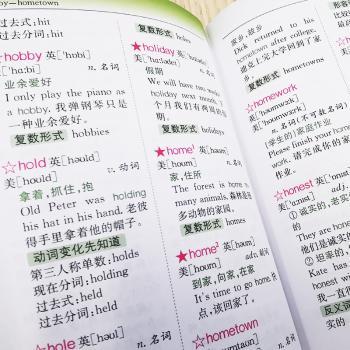 by—hometown
过去式:hit
过去分词:hit
☆hobby 英['hɒbi]
美['hɑːbi] n.名词
业余爱好
I only play the piano as
a hobby. 我弹钢琴只是
一种业余爱好。
复数形式 hobbies
☆hold 英[həʊld]
美[hoʊld] v.动词
拿着,抓住,抱
Old Peter was holding
his hat in his hand. 老彼
得手里拿着他的帽子。
动词变化先知道
第三人称单数:holds
现在分词:holding
过去式:held
过去分词:held
☆hole 英[həʊl]
n.名词
复数形式 holes
★holiday 英['hɒlədeɪ]
美['hɑːlədeɪ] n.名词
假期
We will have two weeks'
holiday next month. 下
个月我们有两周的假
期。
复数形式 holidays
★home¹ 英[həʊm]
美[hoʊm] n.名词
家,住所
The forest is home to
many animals. 森林是许
多动物的家园。
复数形式 homes
☆home² 英[həʊm]
美[hoʊm] adv.副词
到家,向家,在家
It's time to go home. 到
点,该回家了。
☆hometown
英[ˌhəʊmˈtaʊn]
n.名词
家乡,故乡
Dick returned to his
hometown after college.
迪克上完大学回到了家
乡。
复数形式 hometowns
☆homework
英['həʊmwɜːk]
美['hoʊmwɜːrk]
n.名词(不可数名词)
(学生的)家庭作业
Please finish your homework.
请完成你的家庭
作业。
☆honest
美['ɑːnɪst]
adj.
① 诚实的,老实
They are honest
他们是诚实
② 坦率的,
Kate has
honest
我一直很
反义词
实的